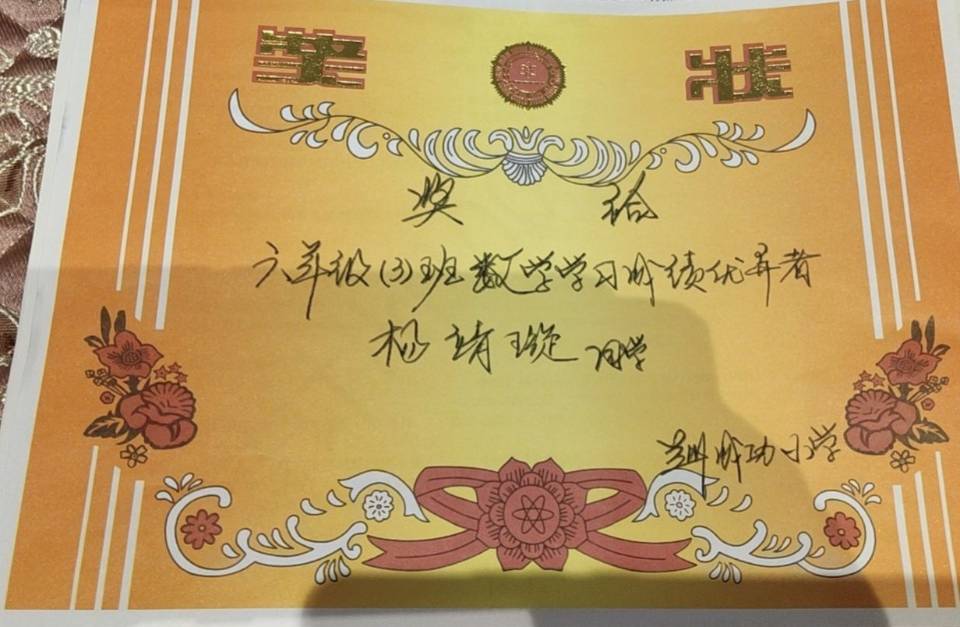 奖状
奖 给
六年级(3)班数学学习成绩优异者
杨靖璇 同学
成功小学